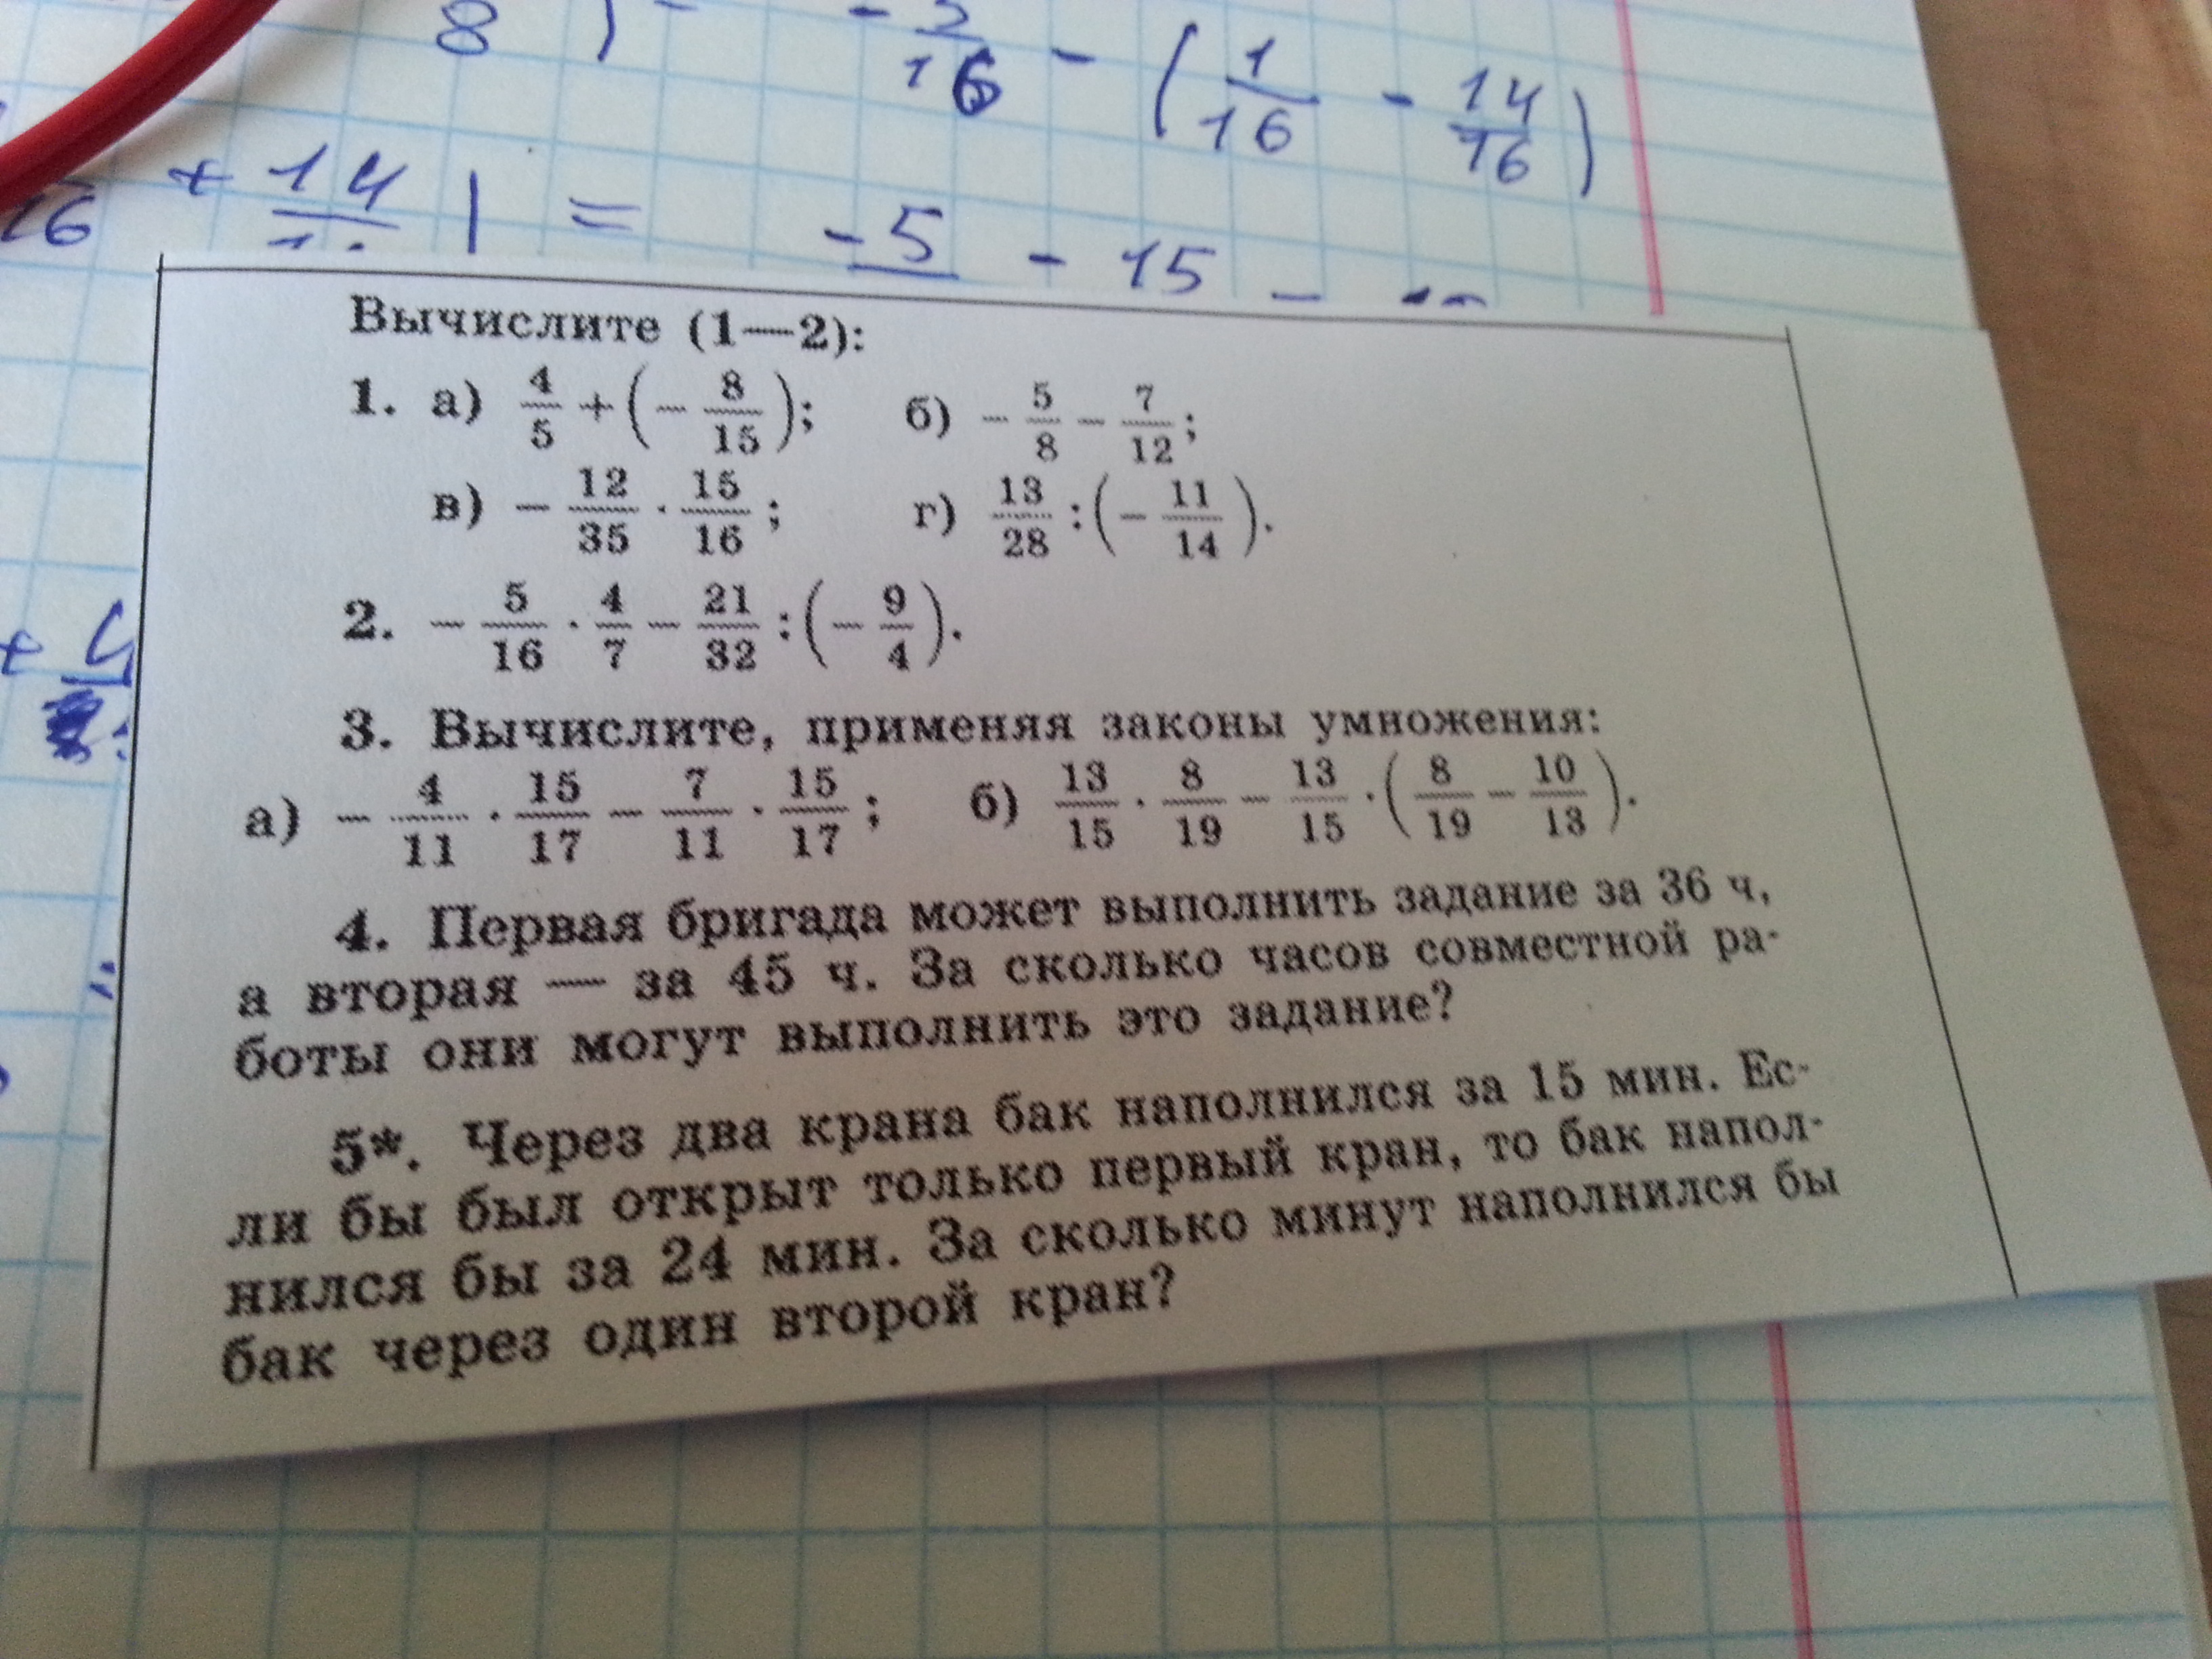 8 ) - - 5/16 - (1/16 - 14/16)
16 + 14 | = -5 - 15
Вычислите (1—2):
1. а) 4/5 + (- 8/15); б) - 5/8 - 7/12;
в) - 12/35 · 15/16; г) 13/28 : (- 11/14).
2. - 5/16 · 4/7 - 21/32 : (- 9/4).
3. Вычислите, применяя законы умножения:
а) - 4/11 · 15/17 - 7/11 · 15/17; б) 13/15 · 8/19 - 13/15 · (8/19 - 10/13).
4. Первая бригада может выполнить задание за 36 ч,
а вторая — за 45 ч. За сколько часов совместной ра-
боты они могут выполнить это задание?
5*. Через два крана бак наполнился за 15 мин. Ес-
ли бы был открыт только первый кран, то бак напол-
нился бы за 24 мин. За сколько минут наполнился бы
бак через один второй кран?